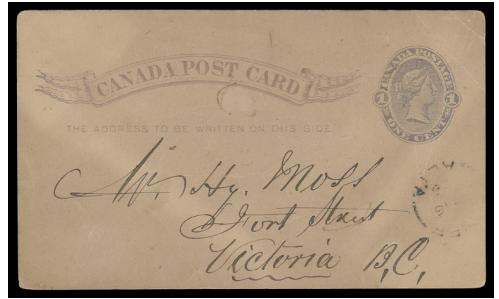 CANADA POST CARD
CANADA POSTAGE
1 1
ONE CENT
THE ADDRESS TO BE WRITTEN ON THIS SIDE
Mr. Hy. Moss
Fort Street
Victoria B.C.